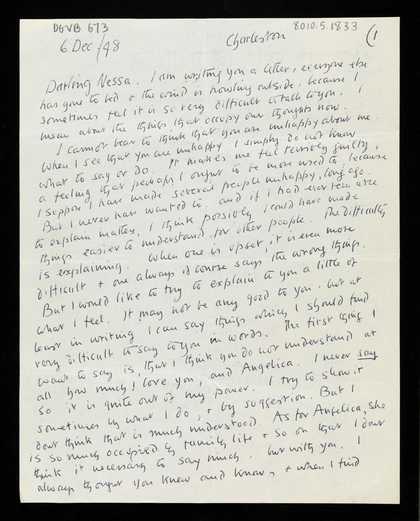 DGVB 673
8010.5.1833
6 Dec/48
Charleston
(1
Darling Nessa. I am writing you a letter, everyone else
has gone to bed & the wind is howling outside, because I
sometimes feel it is so very difficult to talk to you. I
mean about the things that occupy our thoughts now.
I cannot bear to think that you are unhappy about me.
When I see that you are unhappy I simply do not know
what to say or do. It makes me feel terribly guilty,
a feeling that perhaps I ought to be more used to, because
I suppose I have made several people unhappy, long ago.
But I never have wanted to. and if I had ever been able
to explain matters, I think possibly I could have made
things easier to understand, for other people. The difficulty
is explaining. When one is upset, it is even more
difficult & one always of course says the wrong things.
But I would like to try to explain to you a little of
what I feel. It may not be any good to you. but at
least in writing I can say things which I should find
very difficult to say to you in words. The first thing I
want to say is, that I think you do not understand at
all how much I love you, and Angelica. I never say
so it is quite out of my power. I try to show it
sometimes by what I do, & by suggestion. But I
dont think that is much understood. As for Angelica, she
is so much occupied by family life & so on that I dont
think it necessary to say much. but with you. I
always thought you knew and know, & when I find